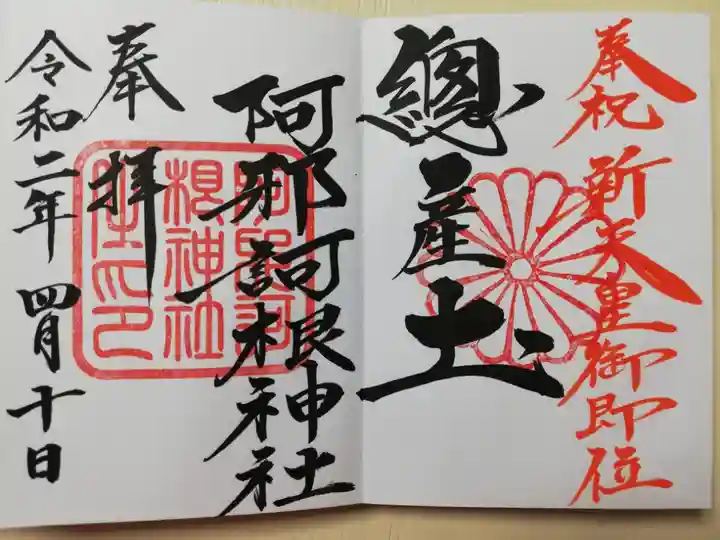 奉祝 新天皇御即位
總産圡
阿邪訶根神社
奉拝
令和二年 四月十日
阿邪訶
根神社